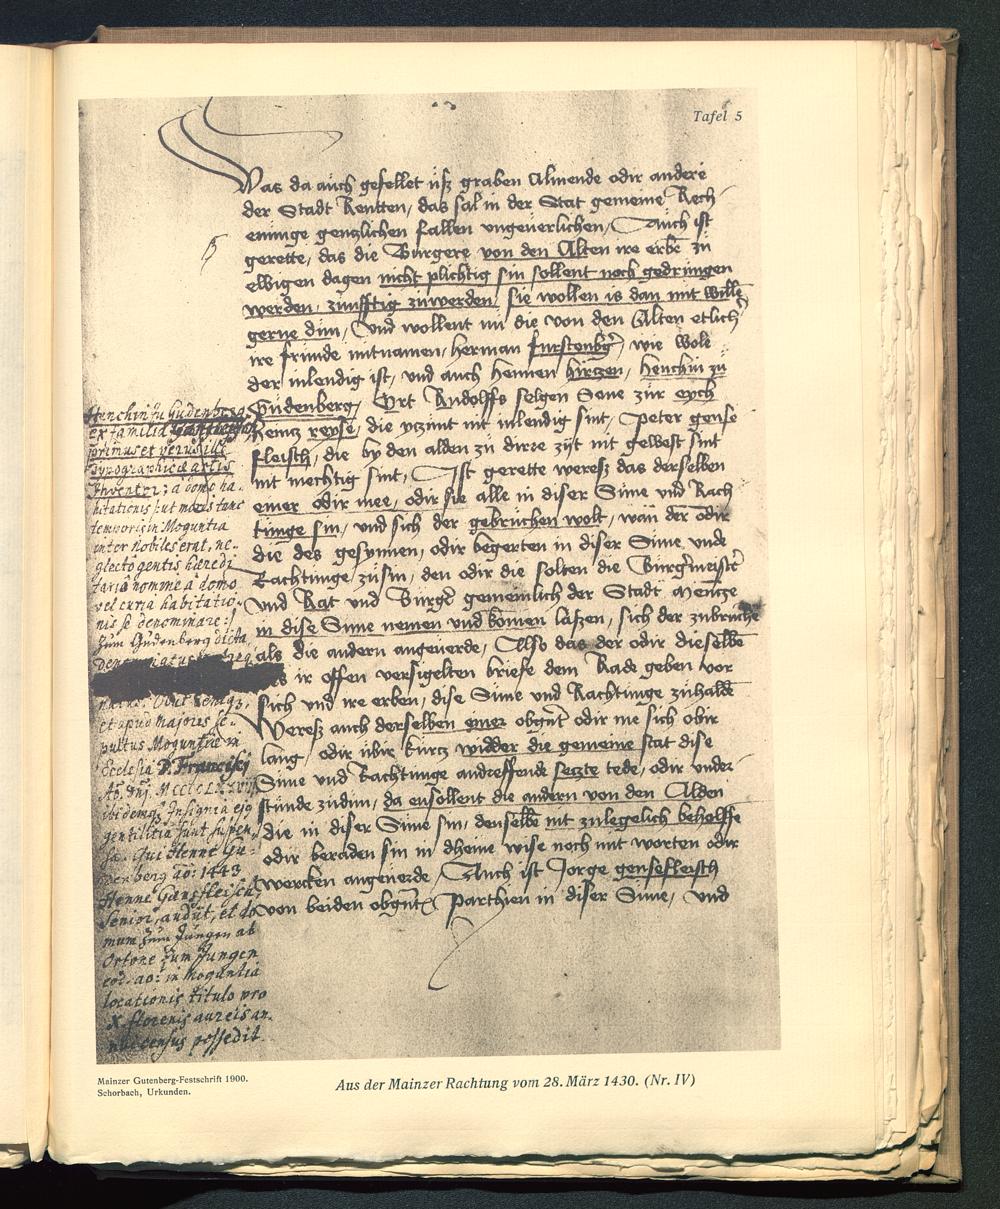 Tafel 5
Was da auch gefellet usz graben Almende odir andere
der Stadt Rentten, das sal in der Stat gemeine Rech
enunge genzlichen fallen ungeuerlichen, Auch ist
gerette, das die Burgere von den Alten ire erbē zu
ewigen dagen nicht plichtig sin sollent noch gedrungen
werden, zunfftig zuwerden, sie wollen is dan mit willē
gerne dun, Und wollent mi die von den Alten etlich
ire frunde mitnamen, herman furstenbg, wie wole
der inlendig ist, und auch hennen hirtzen, henchin zu
Gudenberg, Ort Rudolffs selgen Sone zur eych
heintz reyse, die yczunt nit inlendig sint, Peter gense
fleisch, die by den alden zu dirre zijt nit gewest sint
nit mechtig sint, Ist gerette weresz das derselben
einer odir mee, odir sie alle in diser Sune und Rach
tunge sin, und sich der gebruchen wolt, wan der odir
die des gesunnen, odir begerten in diser Sune unde
Rachtunge zusin, den odir die solten die Burgermeistē
und Rat und Burgē gemeinlich der Stadt Mentze
in dise Sune nemen und komen laszen, sich der zubruchē
als die andern angeuerde, Also das der odir dieselbē
ir offen versigelten briefe dem Rade geben vor
sich und ire erben, dise Sune und Rachtunge zuhaldē
Weresz auch derselben einer obgnt odir me sich obir
lang, odir ubir kurcz widder die gemeine stat dise
Sune und Rachtunge andreffende seczte tede, odir under
stunde zudun, da ensollent die andern von den Alden
die in diser Sune sin, denselbē nit zulegelich beholffē
odir beraden sin in dheine wise noch mit worten odir
wercken angeuerde, Auch ist Jorge gensefleisch
von beiden obgnt Parthien in diser Sune, und
Henchin zu Gudenberg
ex familia Gensfleisch
primus et verus ille
Typographicæ artis
Inventor; a domo ha-
bitationis |: ut moris tunc
temporis in Moguntia
inter nobiles erat, ne-
glecto gentis hæredi
tariâ nomine a domo
vel curia habitatio-
nis se denominare :|
zum Gudenberg dicta
denominatus
Obiit
et apud majores se-
pultus Moguntiæ in
Ecclesia D. Francisci
ibidemq; Insignia ejq
gentilitia sunt suspen-
sa. Qui Henne Gu-
denberg aō: 1443
Henne Gänsfleisch,
Senior, audiit, et do
mum zum Jungen ab
Ortone zum Jungen
eod. ao: in Moguntia
locationis titulo pro
X florenis aureis an.
nui census possedit.
Mainzer Gutenberg-Festschrift 1900.
Schorbach, Urkunden.
Aus der Mainzer Rachtung vom 28. März 1430. (Nr. IV)